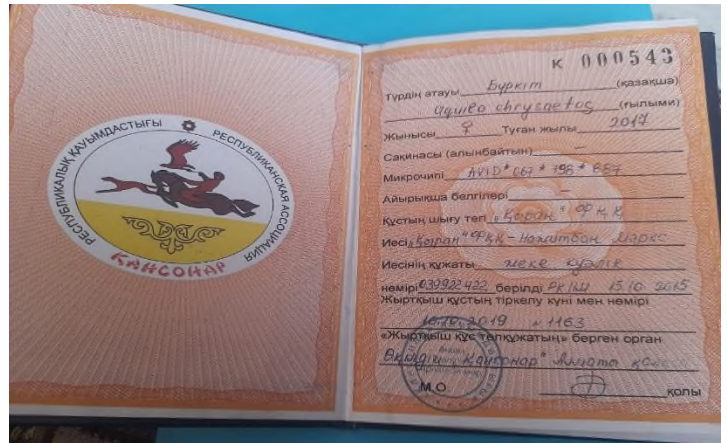 РЕСПУБЛИКАЛЫҚ ҚАУЫМДАСТЫҒЫ
РЕСПУБЛИКАНСКАЯ АССОЦИАЦИЯ
ҚАНСОНАР
К 000543
Түрдің атауы Бүркіт (қазақша)
Aquila chrysaetos (ғылыми)
Жынысы ♀ Туған жылы 2017
Сақинасы (алынбайтын) —
Микрочипі AVID * 067 * 798 * 887
Айырықша белгілері —
Құстың шығу тегі „Қыран“
Иесі „Қыран“ Маркс
Иесінің құжаты жеке куәлік
нөмірі 039922422 берілді 15.10.2015
Жыртқыш құстың тіркелу күні мен нөмірі
2019 № 1163
«Жыртқыш құс төлқұжатың» берген орган
Қансонар" Алматы
М.О. қолы